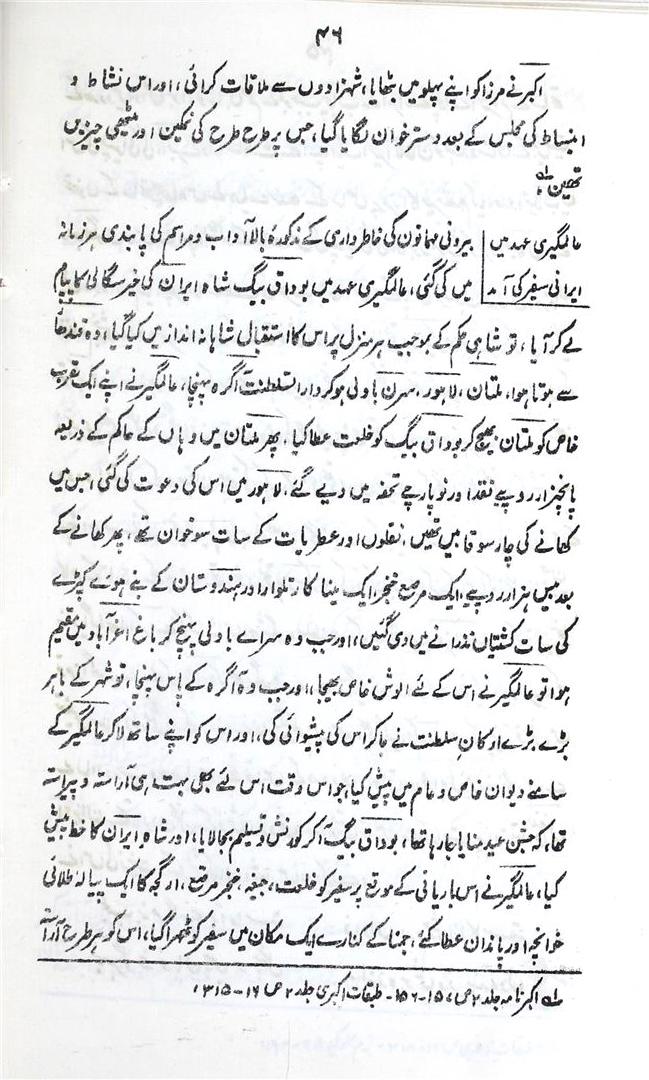 ۴۶
اکبر نے مرزا کو اپنے پہلو میں بٹھایا، شہزادوں سے ملاقات کرائی، اور اس نشاط و
انبساط کی مجلس کے بعد دسترخوان لگایا گیا، جس پر طرح طرح کی نمکین اور میٹھی چیزیں
تھین،
عالمگیری عہد میں
ایرانی سفیر کی آمد
بیرونی مہمانون کی خاطرداری کے مذکورۂ بالا آداب و مراسم کی پابندی ہر زمانہ
میں کی گئی، عالمگیری عہد میں بوداق بیگ شاہ ایران کی خیرسگالی کا پیام
لے کر آیا، تو شاہی حکم کے بموجب ہر منزل پر اس کا استقبال شاہانہ انداز میں کیا گیا، وہ قندھار
سے ہوتا ہوا، ملتان، لاہور، سہرن باولی ہو کر دارالسلطنت آگرہ پہنچا، عالمگیر نے اپنے ایک مقرب
خاص کو ملتان بھیج کر بوداق بیگ کو خلعت عطا کیا، پھر ملتان میں وہاں کے حاکم کے ذریعہ
پانچہزار روپیے نقد اور نو پارچے تحفہ میں دیے گئے، لاہور میں اس کی دعوت کی گئی، جس میں
کھانے کی چار سو قابیں تھیں، نقلوں اور عطریات کے سات سو خوان تھے، پھر کھانے کے
بعد بیس ہزار روپیے، ایک مرصع خنجر، ایک مینا کار تلوار اور ہندوستان کے بنے ہوئے کپڑے
کی سات کشتیاں نذرانے میں دی گئیں، اور جب وہ سرائے باولی پہنچ کر باغ اغرآباد میں مقیم
ہوا تو عالمگیر نے اس کے لئے الوش خاص بھیجا، اور جب وہ آگرہ کے پاس پہنچا، تو شہر کے باہر
بڑے بڑے ارکانِ سلطنت نے جا کر اس کی پیشوائی کی، اور اس کو اپنے ساتھ لا کر عالمگیر کے
سامنے دیوان خاص و عام میں پیش کیا، جو اس وقت اس لئے بھی بہت ہی آراستہ و پیراستہ
تھا، کہ جشن عید منایا جا رہا تھا، بوداق بیگ آ کر کورنش و تسلیم بجا لایا، اور شاہ ایران کا خط پیش
کیا، عالمگیر نے اس باریابی کے موقع پر سفیر کو خلعت، جیغہ، خنجر مرصع، ارگجہ کا ایک پیالہ طلائی
خوانچہ اور پاندان عطا کئے، جمنا کے کنارے ایک مکان میں سفیر کو ٹھہرا گیا، اس کو ہر طرح آراستہ
لہ اکبرنامہ جلد ۲ ص ۱۵۷-۱۵۶- طبقات اکبری جلد ۲ ص ۱۶-۳۱۵،